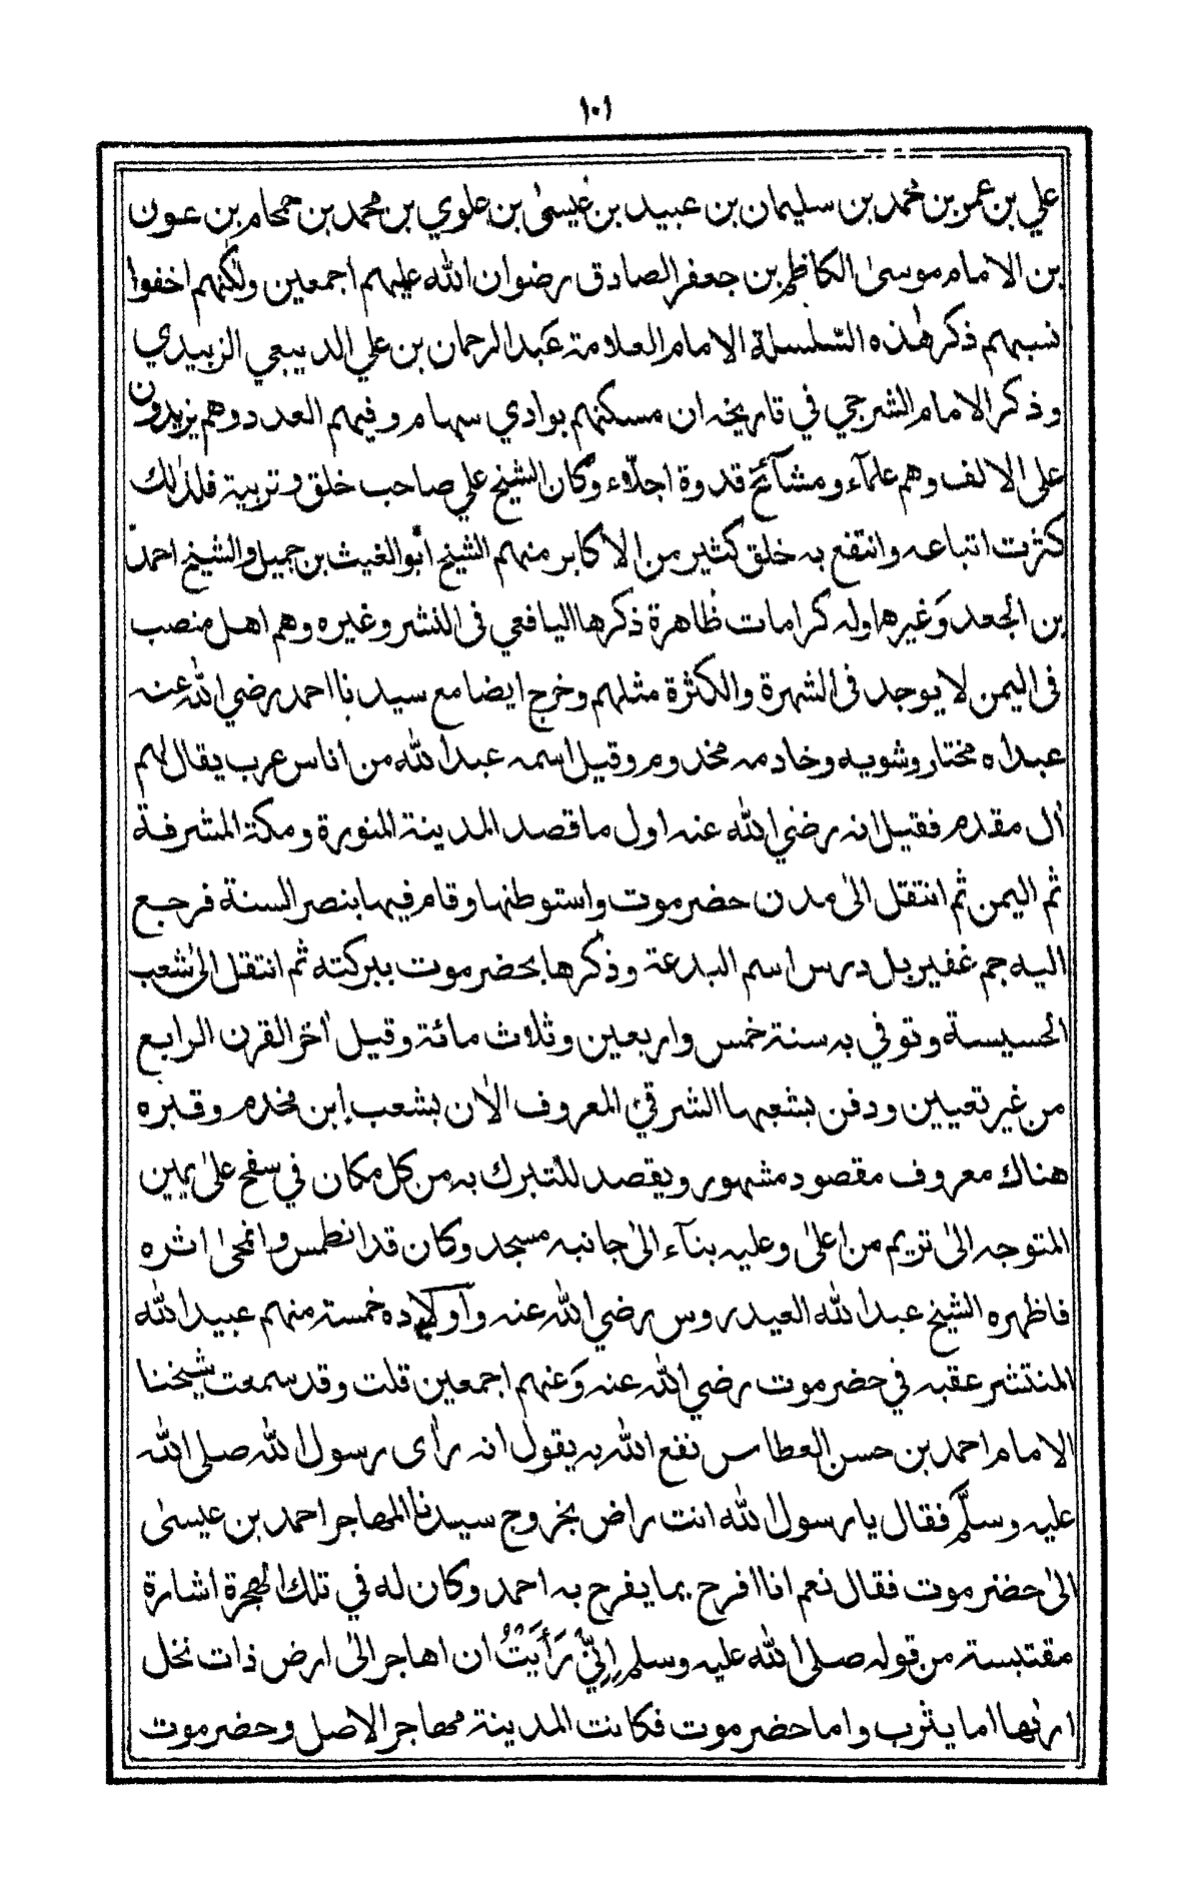 ١٠١
علي بن عمر بن محمد بن سليمان بن عبيد بن عيسىٰ بن علوي بن محمد بن حمحام بن عون
بن الامام موسىٰ الكاظم بن جعفر الصادق رضوان الله عليهم اجمعين ولكنهم اخفوا
نسبهم ذكر هٰذه السّلسلة الامام العلامة عبد الرحمان بن علي الديبعي الزبيدي
وذكر الامام الشرجي في تاريخه ان مسكنهم بوادي سهام وفيهم العدد وهم يزيدون
على الالف وهم علمآء ومشآئخ قدوة اجلّاء وكان الشيخ علي صاحب خلق وتربية فلذٰلك
كثرت اتباعه وانتفع به خلق كثير من الاكابر منهم الشيخ ابو الغيث بن جميل والشيخ احمد
بن الجعد وغيرها وله كرامات ظاهرة ذكرها اليافعي فى النشر وغيره وهم اهل منصب
فى اليمن لا يوجد فى الشهرة والكثرة مثلهم وخرج ايضا مع سيدنا احمد رضي الله عنه
عبداه مختار وشويه وخادمه مخدوم وقيل اسمه عبد الله من اناس عرب يقال لهم
اٰل مقدم فقيل انه رضي الله عنه اول ما قصد المدينة المنورة ومكة المشرفة
ثم اليمن ثم انتقل الىٰ مدن حضرموت واستوطنها وقام فيها بنصر السنة فرجع
اليه جم غفير بل درس اسم البدعة وذكرها بحضرموت ببركته ثم انتقل الىٰ شعب
الحسيسة وتوفي به سنة خمس واربعين وثلاث مائة وقيل اٰخر القرن الرابع
من غير تعيين ودفن بشعبها الشرقي المعروف الاٰن بشعب إبن مخدم وقبره
هناك معروف مقصود مشهور ويقصد للتبرك به من كل مكان في سفح علىٰ يمين
المتوجه الىٰ تريم من اعلىٰ وعليه بنآء الىٰ جانبه مسجد وكان قد انطمس وانمحىٰ اثره
فاظهره الشيخ عبد الله العيدروس رضي الله عنه واولاده خمسة منهم عبيد الله
المنتشر عقبه في حضرموت رضي الله عنه وعنهم اجمعين قلت وقد سمعت شيخنا
الامام احمد بن حسن العطاس نفع الله به يقول انه رأى رسول الله صلى الله
عليه وسلّم فقال يا رسول الله انت راض بخروج سيدنا المهاجر احمد بن عيسىٰ
الىٰ حضرموت فقال نعم انا افرح بما يفرح به احمد وكان له في تلك الهجرة اشارة
مقتبسة من قوله صلى الله عليه وسلم إِنِّيْ رَأَيْتُ ان اهاجر الىٰ ارض ذات نخل
ارٰها اما يثرب واما حضرموت فكانت المدينة مهاجر الاصل وحضرموت